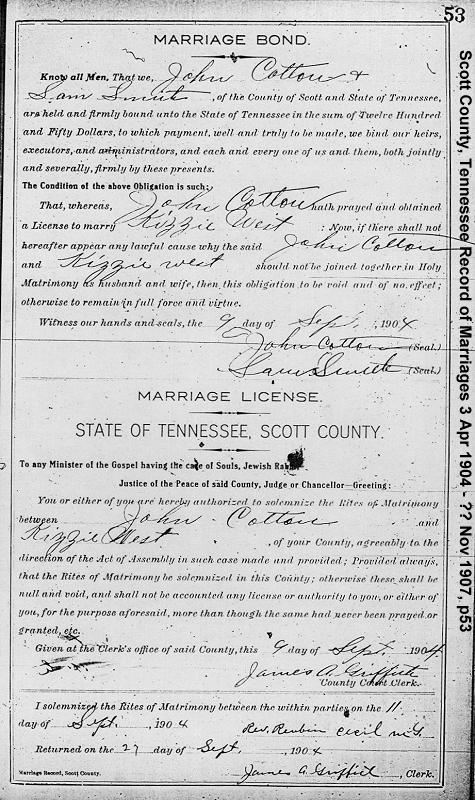 53
MARRIAGE BOND.
Know all Men, That we, John Cotton &
Sam Smith, of the County of Scott and State of Tennessee,
are held and firmly bound unto the State of Tennessee in the sum of Twelve Hundred
and Fifty Dollars, to which payment, well and truly to be made, we bind our heirs,
executors, and administrators, and each and every one of us and them, both jointly
and severally, firmly by these presents.
The Condition of the above Obligation is such:
That, whereas, John Cotton hath prayed and obtained
a License to marry Kizzie West : Now, if there shall not
hereafter appear any lawful cause why the said John Cotton
and Kizzie West should not be joined together in Holy
Matrimony as husband and wife, then this obligation to be void and of no effect;
otherwise to remain in full force and virtue.
Witness our hands and seals, the 9 day of Sept., 1904
John Cotton (Seal.)
Sam Smith (Seal.)
MARRIAGE LICENSE.
STATE OF TENNESSEE, SCOTT COUNTY.
To any Minister of the Gospel having the care of Souls, Jewish Rabbi,
Justice of the Peace of said County, Judge or Chancellor—Greeting:
You or either of you are hereby authorized to solemnize the Rites of Matrimony
between John Cotton and
Kizzie West, of your County, agreeably to the
direction of the Act of Assembly in such case made and provided; Provided always,
that the Rites of Matrimony be solemnized in this County; otherwise these shall be
null and void, and shall not be accounted any license or authority to you, or either of
you, for the purpose aforesaid, more than though the same had never been prayed or
granted, etc.
Given at the Clerk's office of said County, this 9 day of Sept. 1904
James A. Griffith
County Court Clerk.
I solemnized the Rites of Matrimony between the within parties on the 11
day of Sept., 1904 Rev. Reubin Cecil M.G.
Returned on the 27 day of Sept., 1904
Marriage Record, Scott County. James A. Griffith, Clerk.
Scott County, Tennessee Record of Marriages 3 Apr 1904- ?? Nov 1907, p53